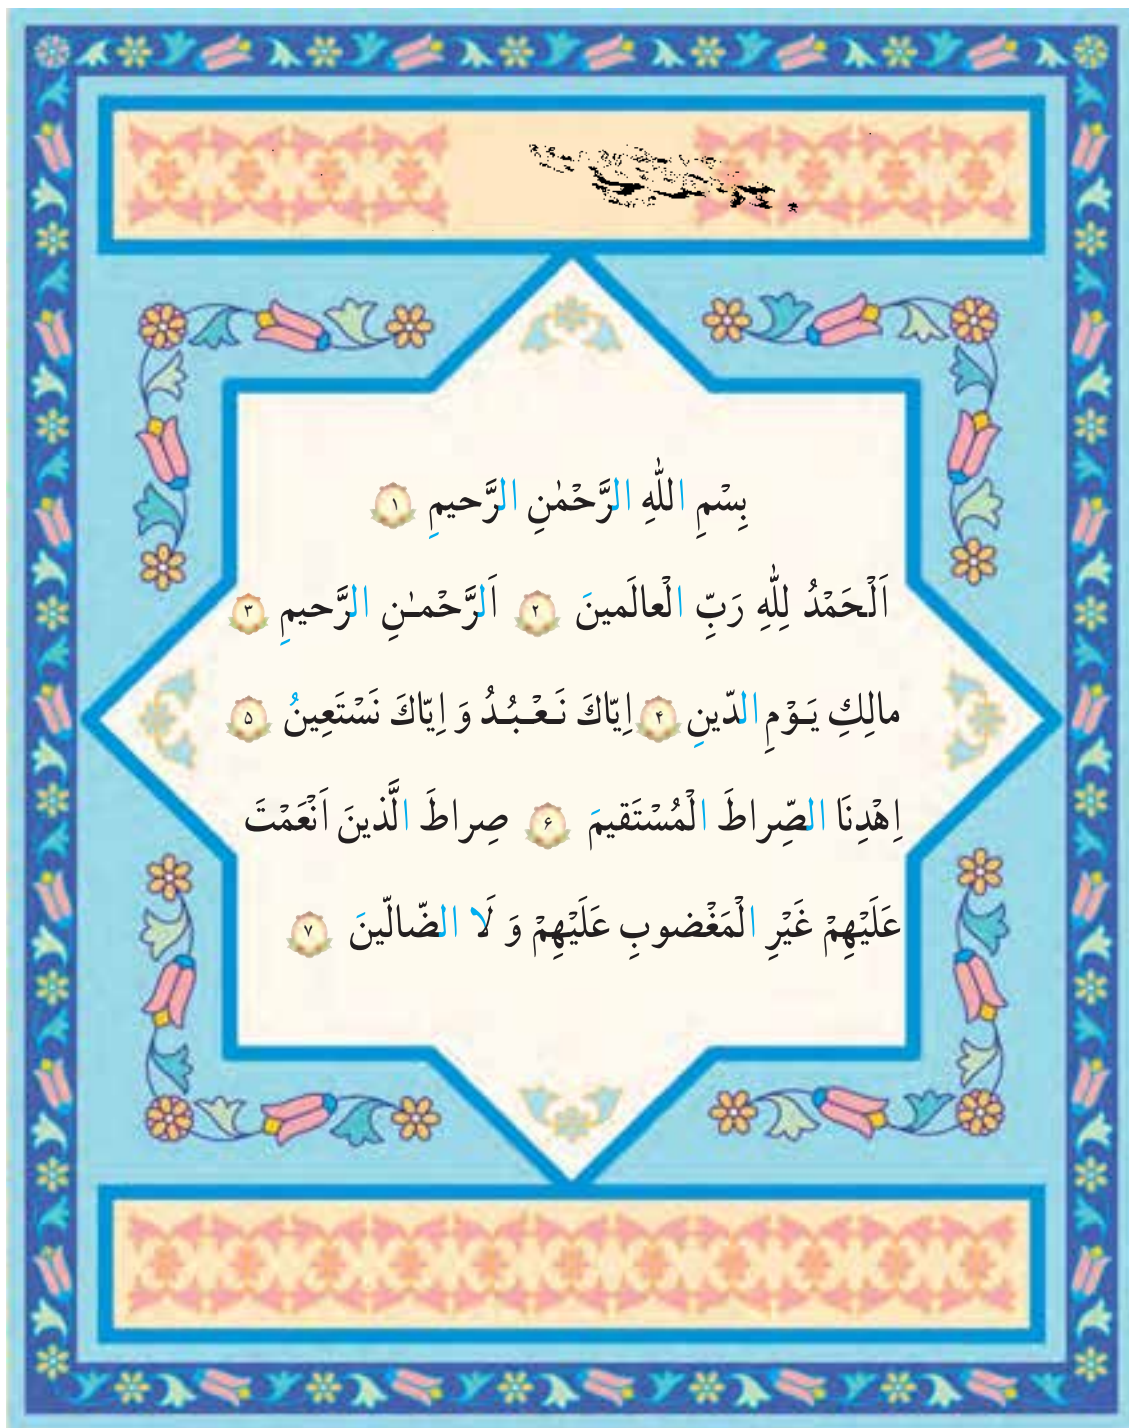 بِسْمِ اللّٰهِ الرَّحْمٰنِ الرَّحیمِ ١
اَلْحَمْدُ لِلّٰهِ رَبِّ الْعالَمینَ ٢ اَلرَّحْمـٰنِ الرَّحیمِ ٣
مالِكِ یَـوْمِ الدّینِ ۴ اِیّاكَ نَـعْـبُـدُ وَ اِیّاكَ نَسْتَعِینُ ۵
اِهْدِنَا الصِّراطَ الْمُسْتَقیمَ ۶ صِراطَ الَّذینَ اَنْعَمْتَ
عَلَیْهِمْ غَیْرِ الْمَغْضوبِ عَلَیْهِمْ وَ لَا الضّالّینَ ٧